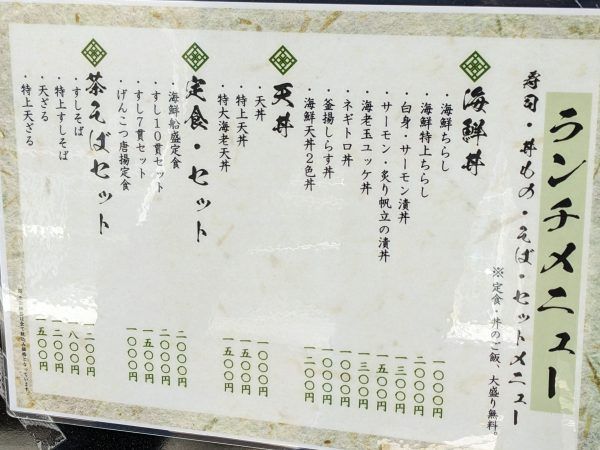 ランチメニュー
寿司・丼もの・そば・セットメニュー
※定食・丼のご飯、大盛り無料。
海鮮丼
・海鮮ちらし 一〇〇〇円
・海鮮特上ちらし 二〇〇〇円
・白身・サーモン漬丼 一三〇〇円
・サーモン・炙り帆立の漬丼 一五〇〇円
・海老玉ユッケ丼 一三〇〇円
・ネギトロ丼 一〇〇〇円
・釜揚しらす丼 一〇〇〇円
・海鮮天丼2色丼 一二〇〇円
天丼
・天丼 一〇〇〇円
・特上天丼 一五〇〇円
・特大海老天丼 一五〇〇円
定食・セット
海鮮船盛定食 二〇〇〇円
・すし10貫セット 二〇〇〇円
・すし7貫セット 一五〇〇円
・げんこつ唐揚定食 一〇〇〇円
茶そばセット
・すしそば 一二〇〇円
・特上すしそば 一八〇〇円
・天ざる 一二〇〇円
・特上天ざる 一五〇〇円